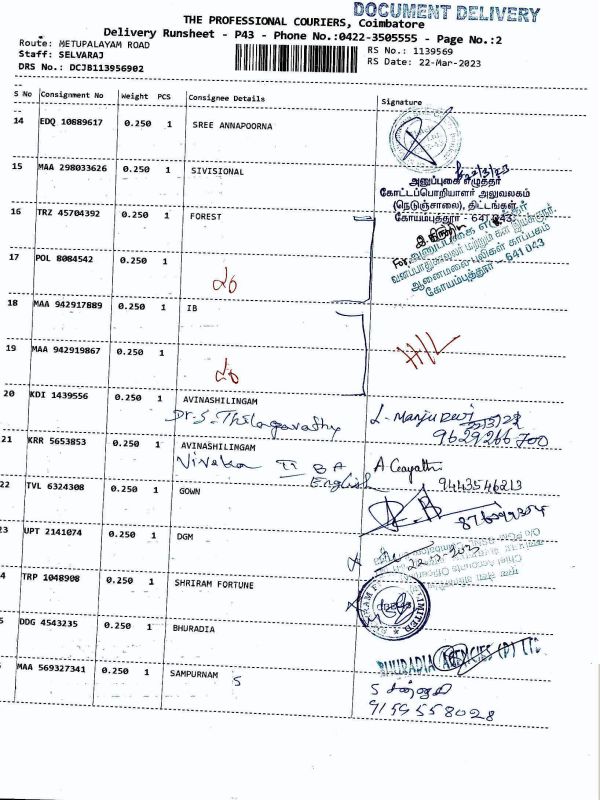 DOCUMENT DELIVERY
THE PROFESSIONAL COURIERS, Coimbatore
Delivery Runsheet - P43 - Phone No.:0422-3505555 - Page No.:2
Route: METUPALAYAM ROAD
RS No.: 1139569
Staff: SELVARAJ
RS Date: 22-Mar-2023
DRS No.: DCJB113956902
S No Consignment No Weight PCS Consignee Details Signature
14 EDQ 10889617 0.250 1 SREE ANNAPOORNA
15 MAA 298033626 0.250 1 SIVISIONAL
22/3/23
அனுப்புகை எழுத்தர்
கோட்டப்பொறியாளர் அலுவலகம்
(நெடுஞ்சாலை), திட்டங்கள்,
கோயம்புத்தூர் - 641 043.
16 TRZ 45704392 0.250 1 FOREST
For
அனுப்புகை எழுத்தர்
வனப்பாதுகாவலர் மற்றும் கள இயக்குநர்,
ஆனைமலை புலிகள் காப்பகம்
கோயம்புத்தூர் - 641 043
17 POL 8084542 0.250 1
18 MAA 942917889 0.250 1 IB
H/L
19 MAA 942919867 0.250 1
20 KDI 1439556 0.250 1 AVINASHILINGAM
Dr.S. Thilagavathy
L. Manju Devi
9629266700
21 KRR 5653853 0.250 1 AVINASHILINGAM
II BA
English
9443546213
22 TVL 6324308 0.250 1 GOWN
23 UPT 2141074 0.250 1 DGM
Chief Accounts Officer
4 TRP 1048908 0.250 1 SHRIRAM FORTUNE
LIMITED
5 DDG 4543235 0.250 1 BHURADIA
BHURADIA AGENCIES (P) LTD
MAA 569327341 0.250 1 SAMPURNAM S
9159558028